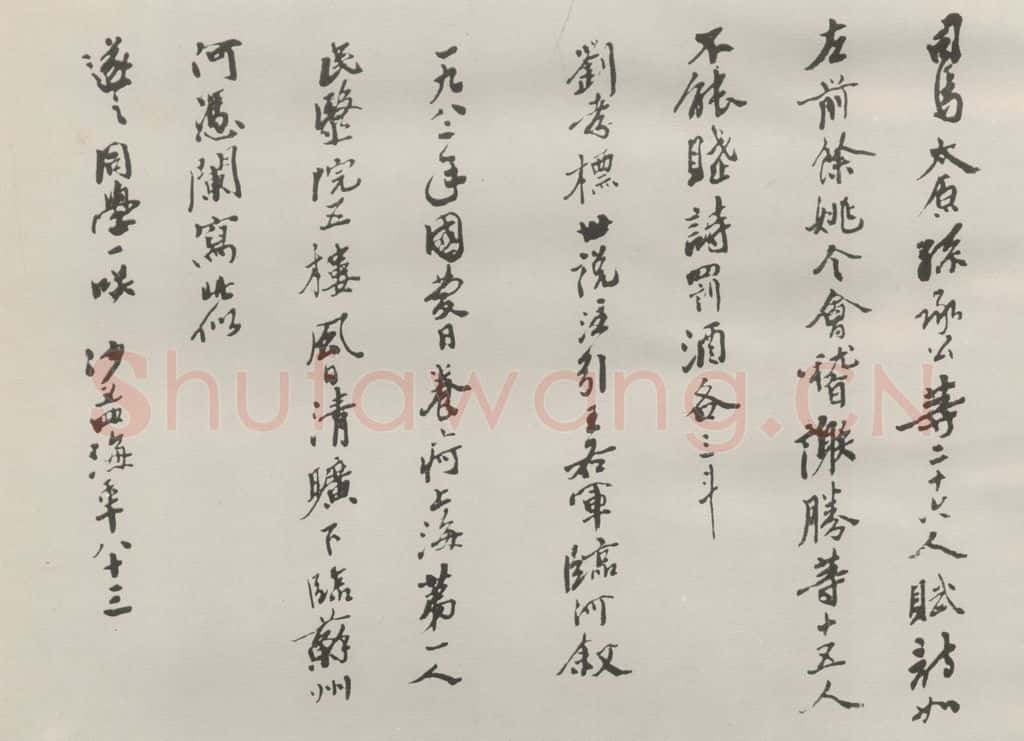 司馬太原孫承公等二十六人賦詩如
左前餘姚令會稽謝勝等十五人
不能賦詩罰酒各三斗
劉孝標世說注引王右軍臨河敘
一九八二年國慶日養疴上海第一人
民醫院五樓風日清曠下臨蘇州
河憑闌寫此似
遂之同學一咲 沙孟海年八十三
Shufawang.CN